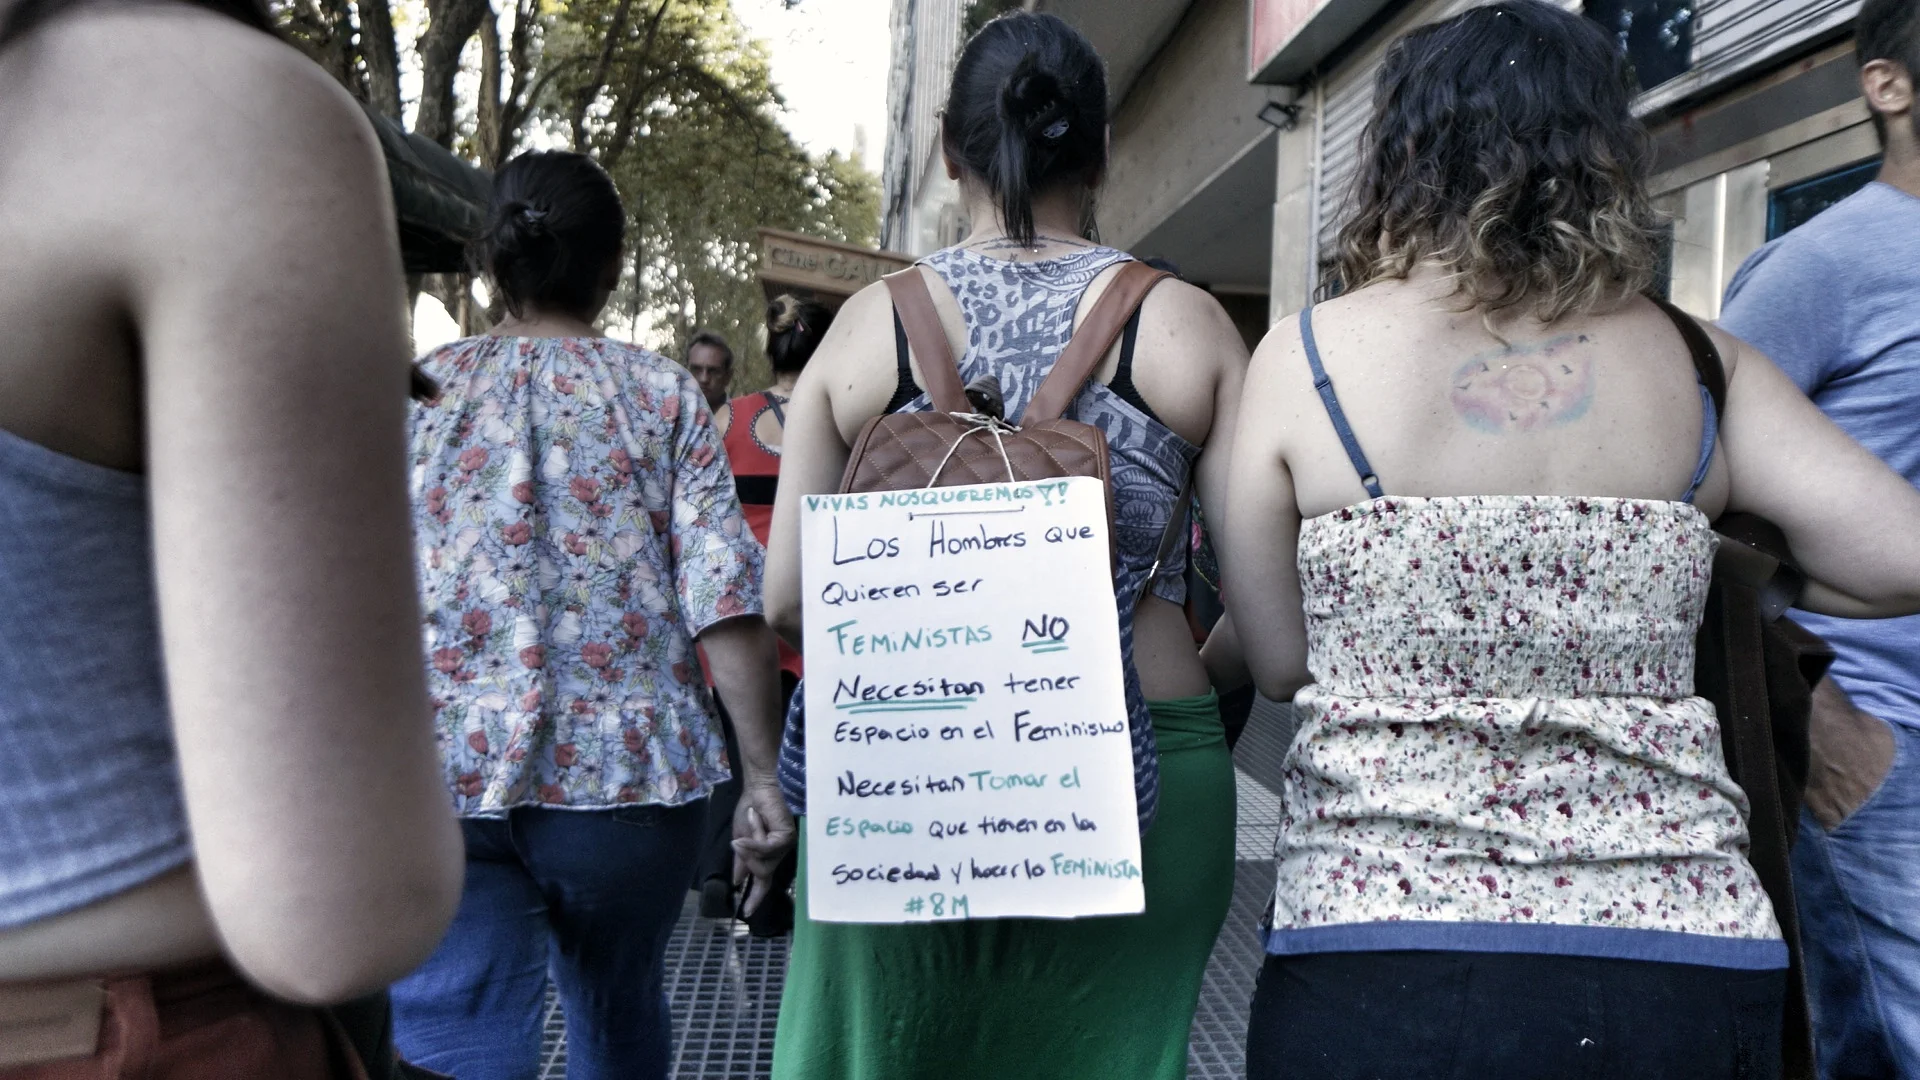 Cine GAU
ViVAS NOSQUEREMOS !
Los Hombres que
Quieren ser
FEMiNiSTAS NO
Necesitan tener
Espacio en el Feminismo
Necesitan Tomar el
Espacio que tienen en la
Sociedad y hacerlo FEMiNiSTA
#8M